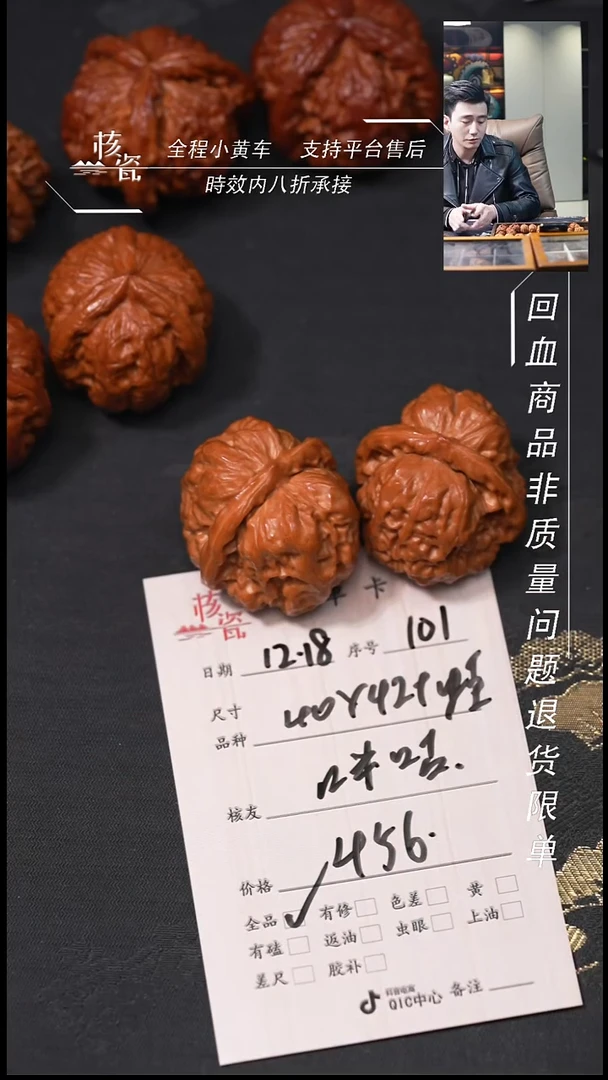 核瓷
全程小黄车 支持平台售后
時效内八折承接
回血商品非质量问题退货限单
核瓷
卡
日期 12-18 序号 101
尺寸
品种
核友
价格 456.
全品 有修 色差 黄
有磕 返油 虫眼 上油
差尺 胶补
抖音电商
QIC中心 备注